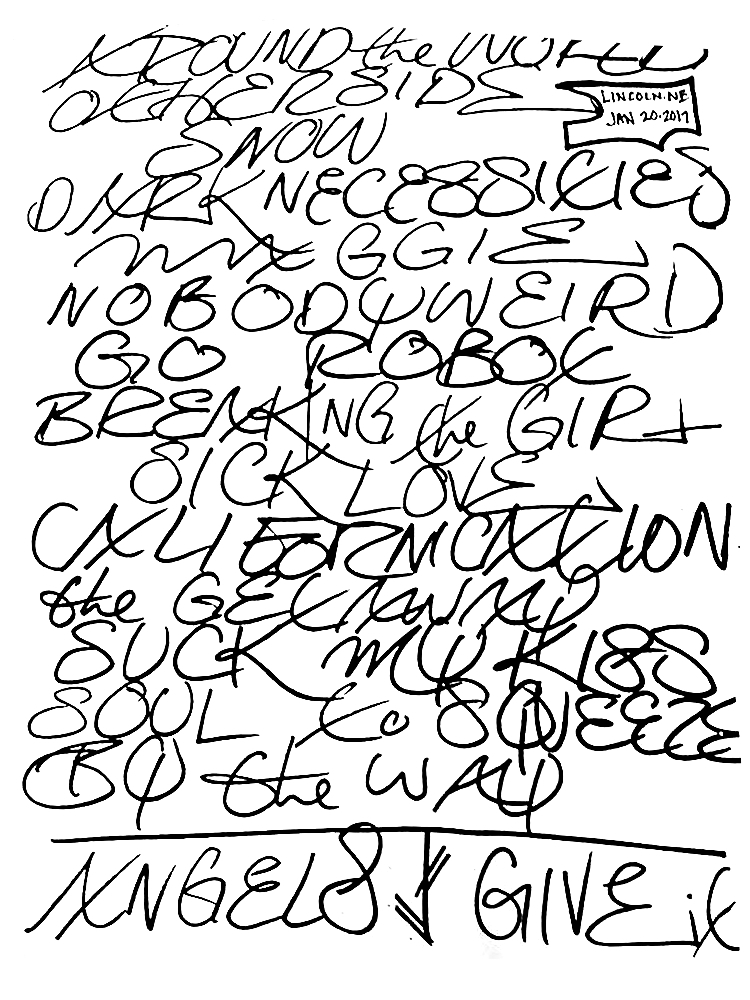 AROUND the WORLD
OTHERSIDE
LINCOLN.NE
JAN 20.2017
SNOW
DARK NECESSITIES
MAGGIE
NOBODY WEIRD
GO ROBOT
BREAKING the GIRL
SICK LOVE
CALIFORNICATION
the GETAWAY
SUCK MY KISS
SOUL to SQUEEZE
BY the WAY
ANGELS ↓ GIVE it